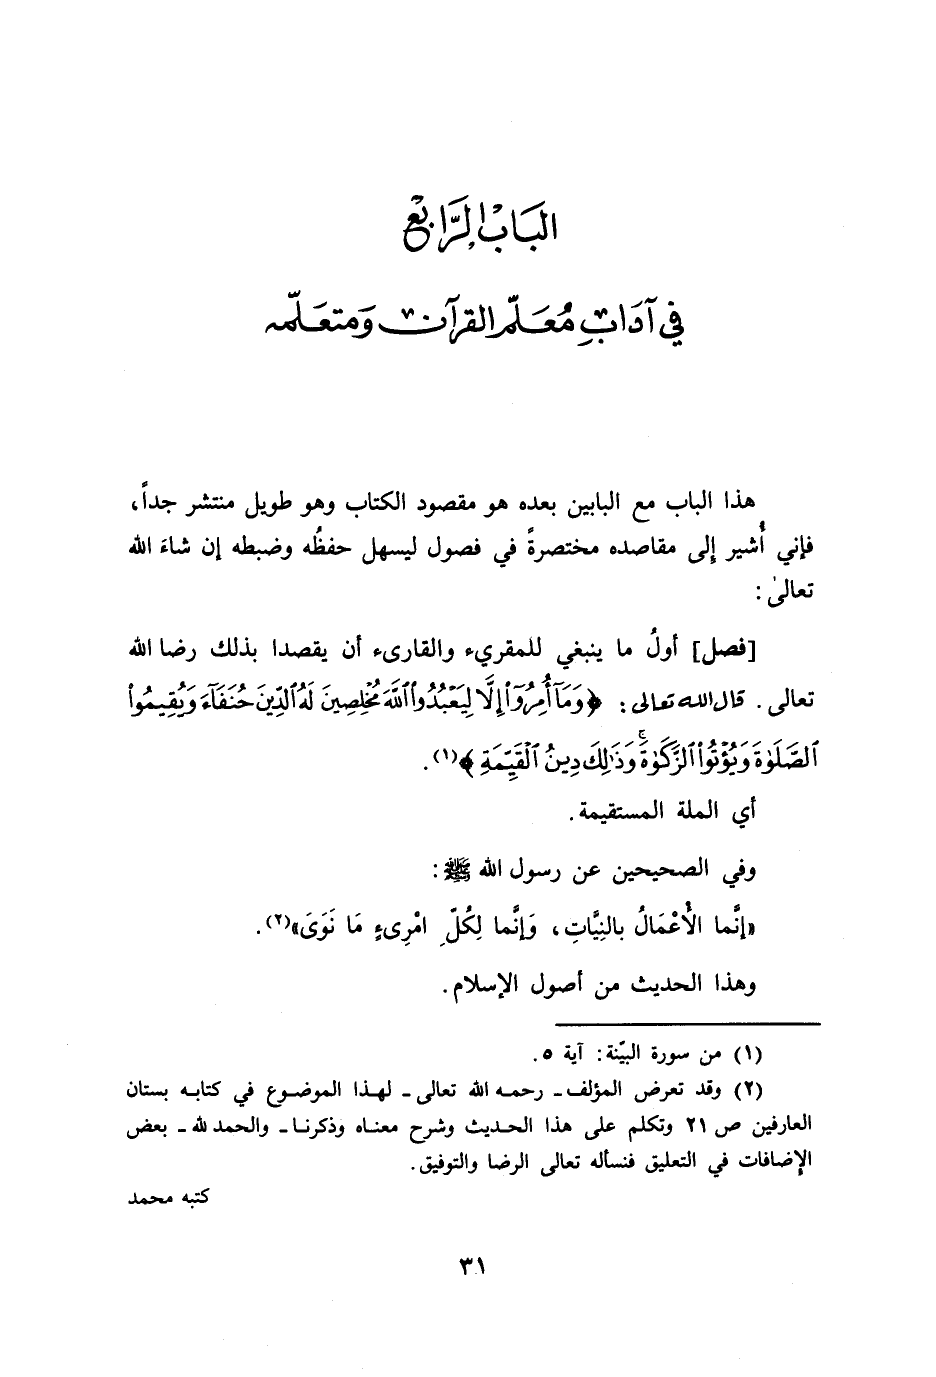 البَابُ الرَّابِعُ
في آدَابِ مُعَلِّم القرآن وَمتعَلِّمه
هذا الباب مع البابين بعده هو مقصود الكتاب وهو طويل منتشر جداً،
فإني أُشير إلى مقاصده مختصرةً في فصول ليسهل حفظُه وضبطه إن شاءَ الله
تعالىٰ:
[فصل] أولُ ما ينبغي للمقريء والقارىء أن يقصدا بذلك رضا الله
تعالى. قال الله تعالى: ﴿وَمَآ أُمِرُوٓاْ إِلَّا لِيَعۡبُدُواْ ٱللَّهَ مُخۡلِصِينَ لَهُ ٱلدِّينَ حُنَفَآءَ وَيُقِيمُواْ
ٱلصَّلَوٰةَ وَيُؤۡتُواْ ٱلزَّكَوٰةَۚ وَذَٰلِكَ دِينُ ٱلۡقَيِّمَةِ﴾(١).
أي الملة المستقيمة.
وفي الصحيحين عن رسول الله ﷺ:
«إنَّما الأَعْمَالُ بالنِيَّاتِ، وَإنَّما لِكُلِّ امْرِىءٍ مَا نَوَىَ»(٢).
وهذا الحديث من أصول الإسلام.
(١) من سورة البيّنة: آية ٥.
(٢) وقد تعرض المؤلف ـ رحمه الله تعالى ـ لهذا الموضوع في كتابه بستان
العارفين ص ٢١ وتكلم على هذا الحديث وشرح معناه وذكرنا ـ والحمد لله ـ بعض
الإضافات في التعليق فنسأله تعالى الرضا والتوفيق.
كتبه محمد
٣١